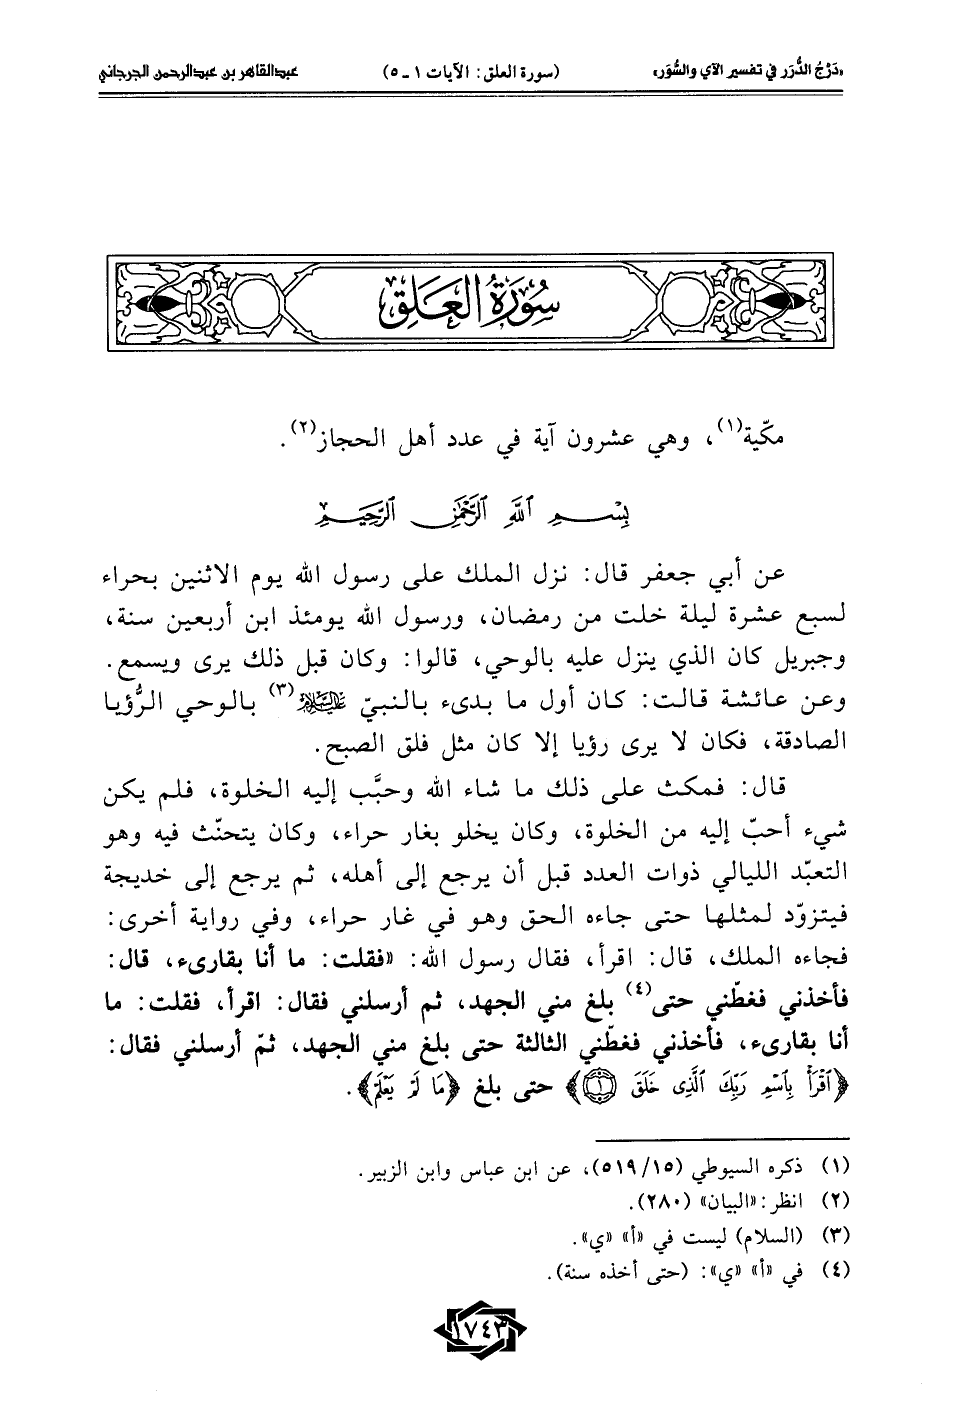 «دَرْجُ الدُّرَر في تفسير الآي والسُّوَر» (سورة العلق: الآيات ١ ـ ٥) عبدالقاهر بن عبدالرحمن الجرجاني
سُورَةُ العَلَقِ
مكّية(١)، وهي عشرون آية في عدد أهل الحجاز(٢).
بِسْمِ ٱللَّهِ ٱلرَّحْمَٰنِ ٱلرَّحِيمِ
عن أبي جعفر قال: نزل الملك على رسول الله يوم الاثنين بحراء
لسبع عشرة ليلة خلت من رمضان، ورسول الله يومئذ ابن أربعين سنة،
وجبريل كان الذي ينزل عليه بالوحي، قالوا: وكان قبل ذلك يرى ويسمع.
وعن عائشة قالت: كان أول ما بدىء بالنبيّ عليه السلام(٣) بالوحي الرُّؤيا
الصادقة، فكان لا يرى رؤيا إلا كان مثل فلق الصبح.
قال: فمكث على ذلك ما شاء الله وحبَّب إليه الخلوة، فلم يكن
شيء أحبّ إليه من الخلوة، وكان يخلو بغار حراء، وكان يتحنّث فيه وهو
التعبّد الليالي ذوات العدد قبل أن يرجع إلى أهله، ثم يرجع إلى خديجة
فيتزوّد لمثلها حتى جاءه الحق وهو في غار حراء، وفي رواية أخرى:
فجاءه الملك، قال: اقرأ، فقال رسول الله: «فقلت: ما أنا بقارىء، قال:
فأخذني فغطّني حتى(٤) بلغ مني الجهد، ثم أرسلني فقال: اقرأ، فقلت: ما
أنا بقارىء، فأخذني فغطّني الثالثة حتى بلغ مني الجهد، ثمّ أرسلني فقال:
﴿ٱقْرَأْ بِٱسْمِ رَبِّكَ ٱلَّذِى خَلَقَ ١﴾ حتى بلغ ﴿مَا لَمْ يَعْلَمْ﴾.
(١) ذكره السيوطي (١٥/٥١٩)، عن ابن عباس وابن الزبير.
(٢) انظر: «البيان» (٢٨٠).
(٣) (السلام) ليست في «أ» «ي».
(٤) في «أ» «ي»: (حتى أخذه سنة).
١٧٤٣